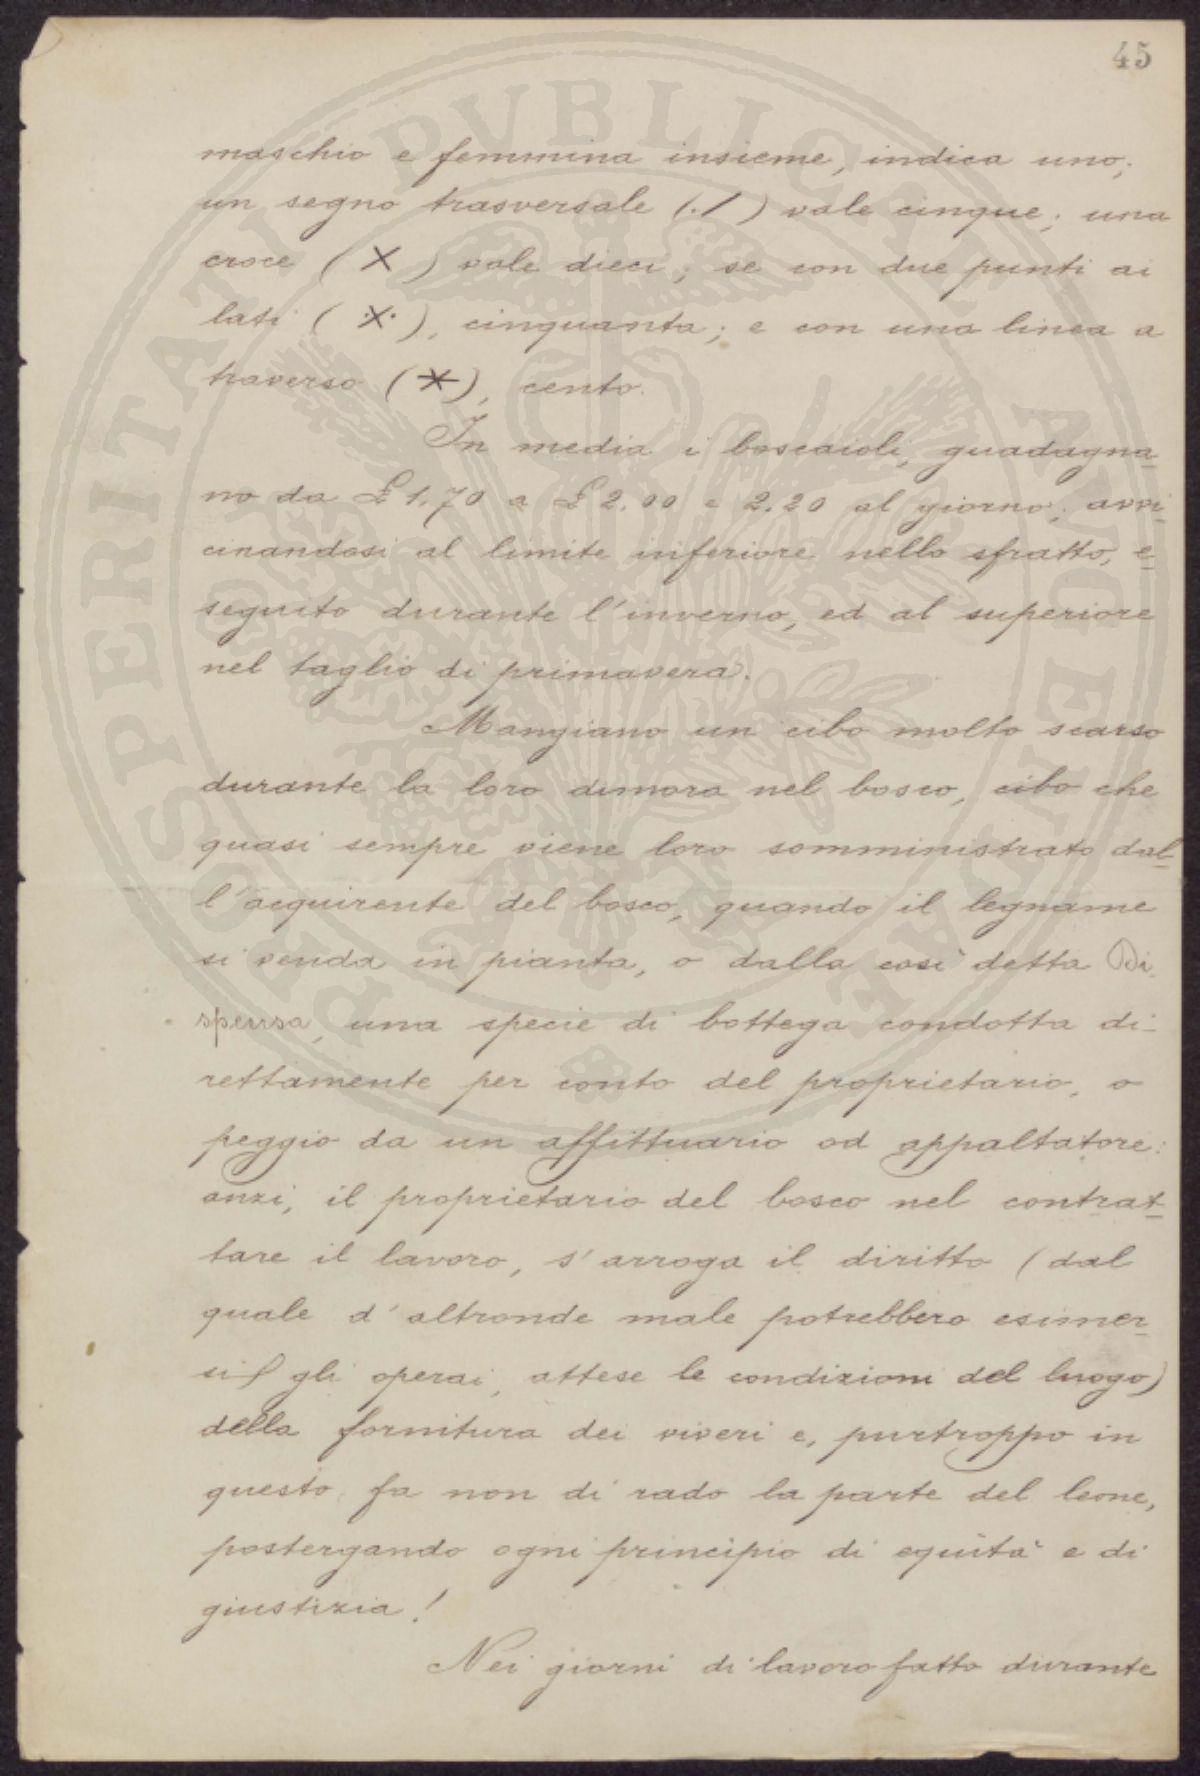 45
maschio e femmina insieme, indica uno;
un segno trasversale (./) vale cinque; una
croce (X) vale dieci; se con due punti ai
lati (·X·), cinquanta; e con una linea a
traverso (*), cento.
In media i boscaioli, guadagna-
no da £ 1.70 a £ 2.00 e 2.20 al giorno; avvi-
cinandosi al limite inferiore nello sfratto, e-
seguito durante l'inverno, ed al superiore
nel taglio di primavera.
Mangiano un cibo molto scarso
durante la loro dimora nel bosco, cibo che
quasi sempre viene loro somministrato dal-
l'acquirente del bosco, quando il legname
si venda in pianta, o dalla così detta Di-
spensa, una specie di bottega condotta di-
rettamente per conto del proprietario, o
peggio da un affittuario od appaltatore:
anzi, il proprietario del bosco nel contrat-
tare il lavoro, s'arroga il diritto (dal
quale d'altronde male potrebbero esimer-
si gli operai, attese le condizioni del luogo)
della fornitura dei viveri e, purtroppo in
questo fa non di rado la parte del leone,
postergando ogni principio di equità e di
giustizia!
Nei giorni di lavoro fatto durante
PROSPERITATI PVBLICAE AVGENDAE